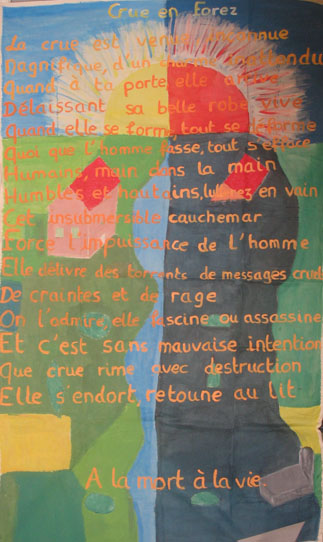 Crue en Forez
La crue est venue inconnue
Magnifique, d'un charme inattendu
Quand à ta porte, elle arrive
Délaissant sa belle robe vive
Quand elle se forme, tout se déforme
Quoi que l'homme fasse, tout s'efface
Humains, main dans la main
Humbles et hautains, lutterez en vain
Cet insubmersible cauchemar
Force l'impuissance de l'homme
Elle délivre des torrents de messages cruels
De craintes et de rage
On l'admire, elle fascine ou assassine
Et c'est sans mauvaise intention
Que crue rime avec destruction
Elle s'endort, retoune au lit
A la mort à la vie.